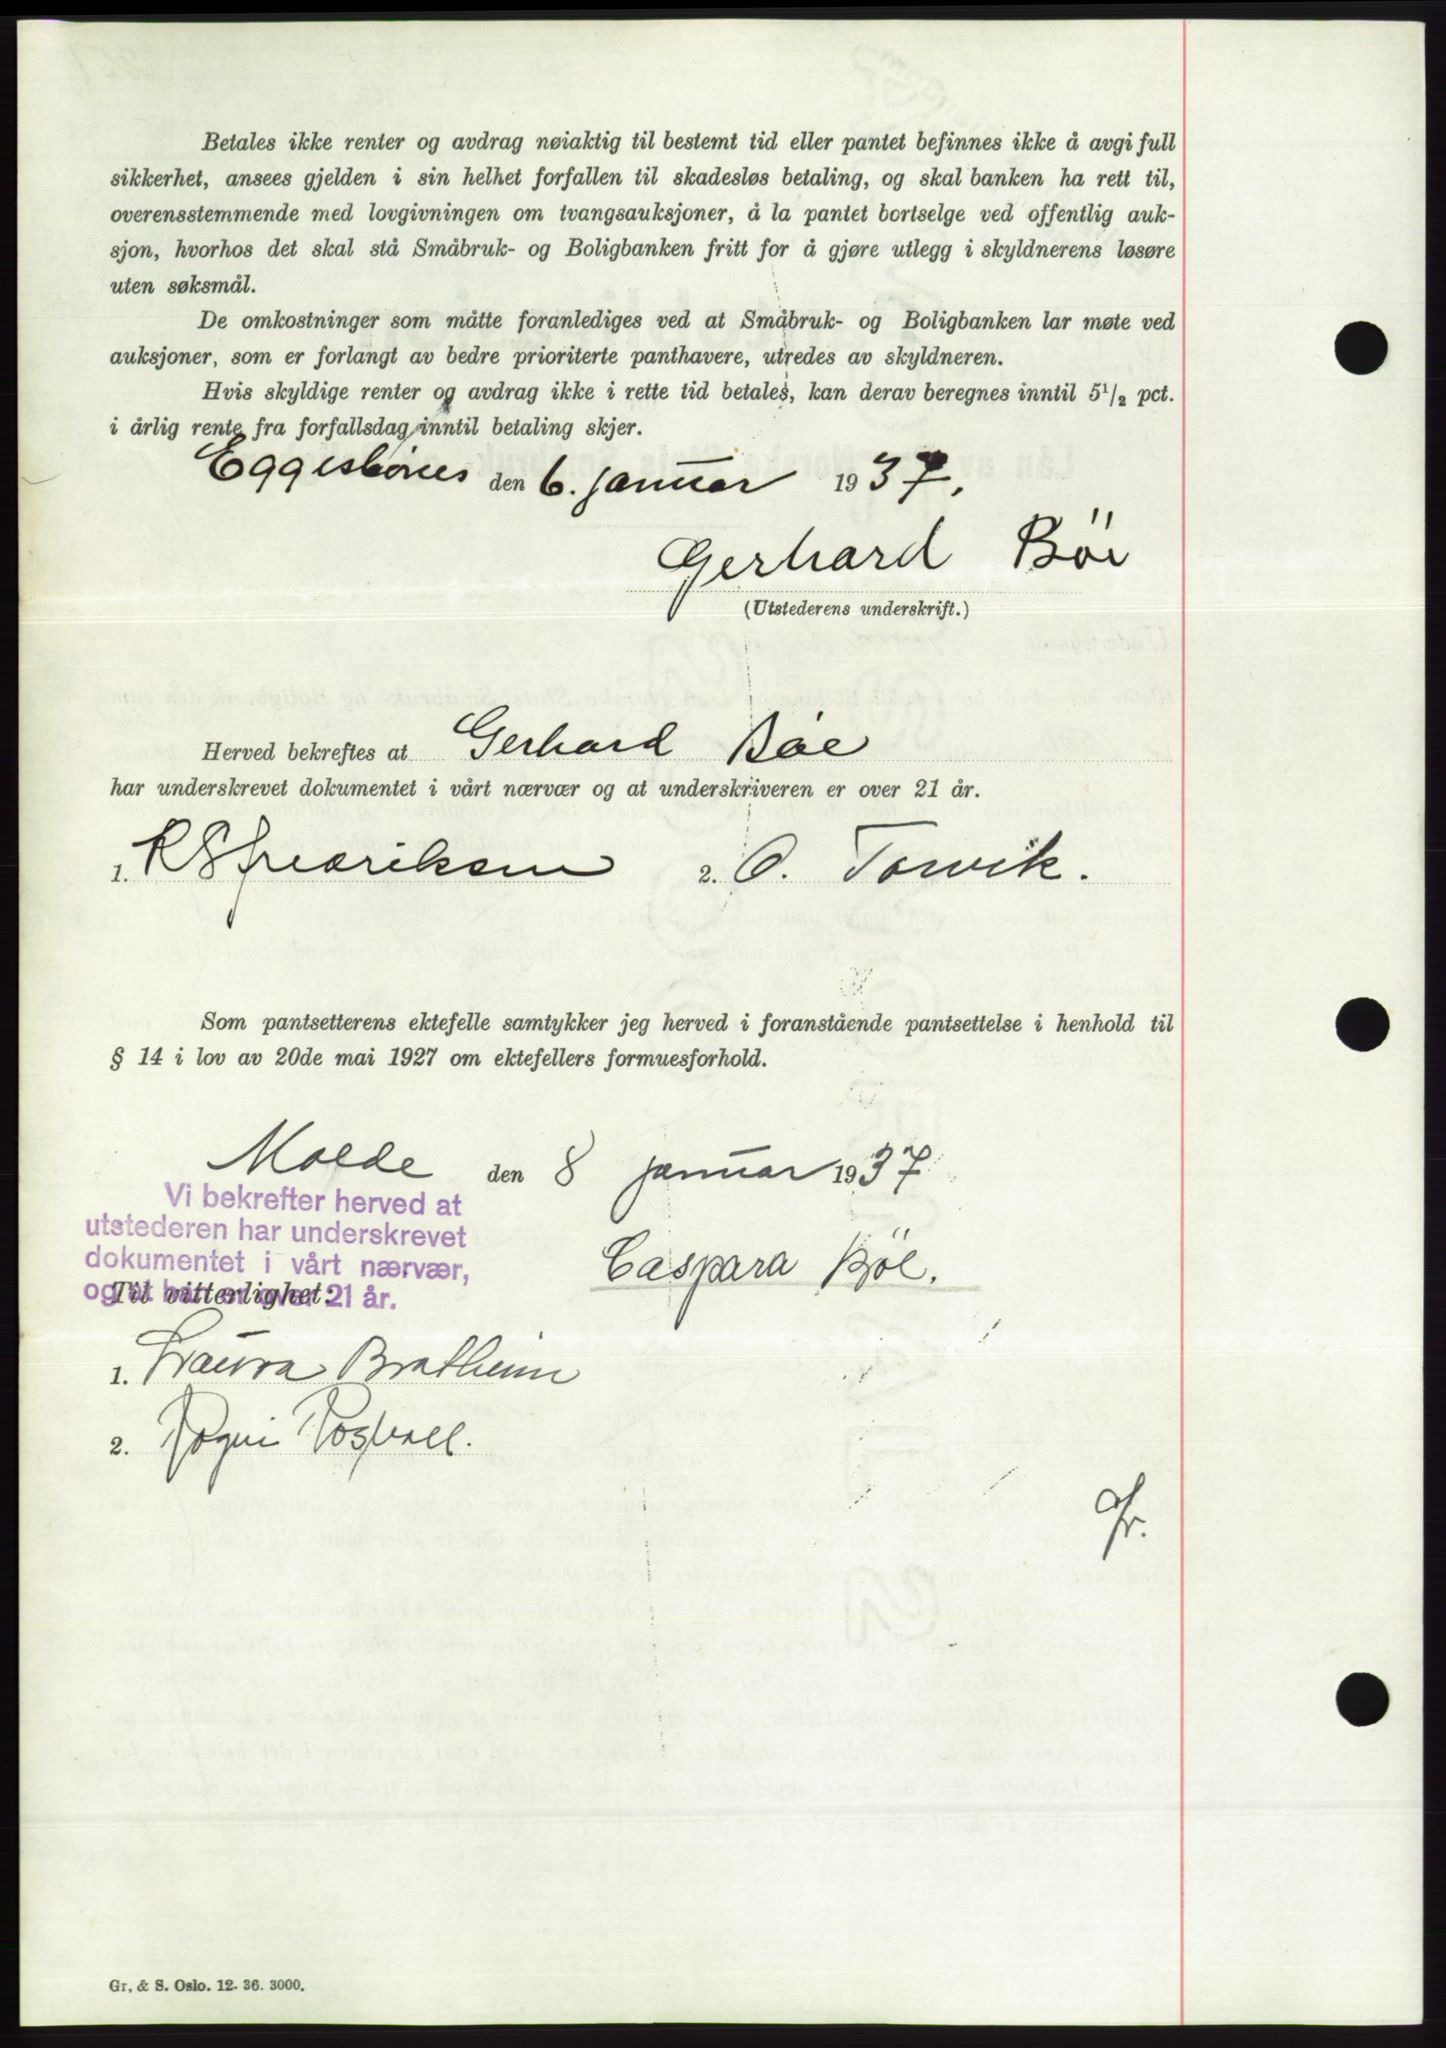 Betales ikke renter og avdrag nøiaktig til bestemt tid eller pantet befinnes ikke å avgi full
sikkerhet, ansees gjelden i sin helhet forfallen til skadesløs betaling, og skal banken ha rett til,
overensstemmende med lovgivningen om tvangsauksjoner, å la pantet bortselge ved offentlig auk-
sjon, hvorhos det skal stå Småbruk- og Boligbanken fritt for å gjøre utlegg i skyldnerens løsøre
uten søksmål.
De omkostninger som måtte foranlediges ved at Småbruk- og Boligbanken lar møte ved
auksjoner, som er forlangt av bedre prioriterte panthavere, utredes av skyldneren.
Hvis skyldige renter og avdrag ikke i rette tid betales, kan derav beregnes inntil 5 1/2 pct.
i årlig rente fra forfallsdag inntil betaling skjer.
Eggesbönes den 6. januar 1937.
Gerhard Böe
(Utstederens underskrift.)
Herved bekreftes at Gerhard Böe
har underskrevet dokumentet i vårt nærvær og at underskriveren er over 21 år.
1. Fredriksen 2. O. Torvik.
Som pantsetterens ektefelle samtykker jeg herved i foranstående pantsettelse i henhold til
§ 14 i lov av 20de mai 1927 om ektefellers formuesforhold.
Molde den 8 januar 1937
Vi bekrefter herved at
utstederen har underskrevet
dokumentet i vårt nærvær,
og at han er over 21 år.
Caspara Böe.
Til vitterlighet:
1. Laura Bratheim
2.
Gr. & S. Oslo. 12. 36. 3000.